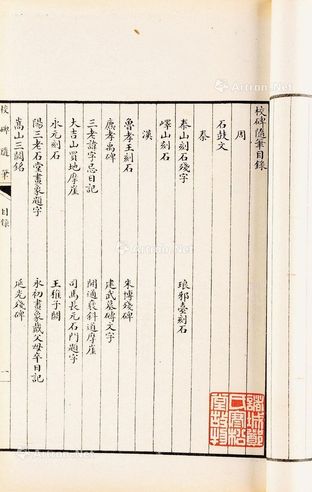 校碑隨筆目錄
周
石鼓文
秦
泰山刻石殘字
琅邪臺刻石
嶧山刻石
漢
魯孝王刻石
朱博殘碑
麃孝禹碑
建武墓磚文字
三老諱字忌日記
開通褒斜道摩崖
大吉山買地摩崖
司馬長元石門題字
永元刻石
王稚子闕
陽三老石堂畫象題字
永初畫象戴父母卒日記
嵩山三闕銘
延光殘碑
校碑隨筆
目錄
一
Artron.Net